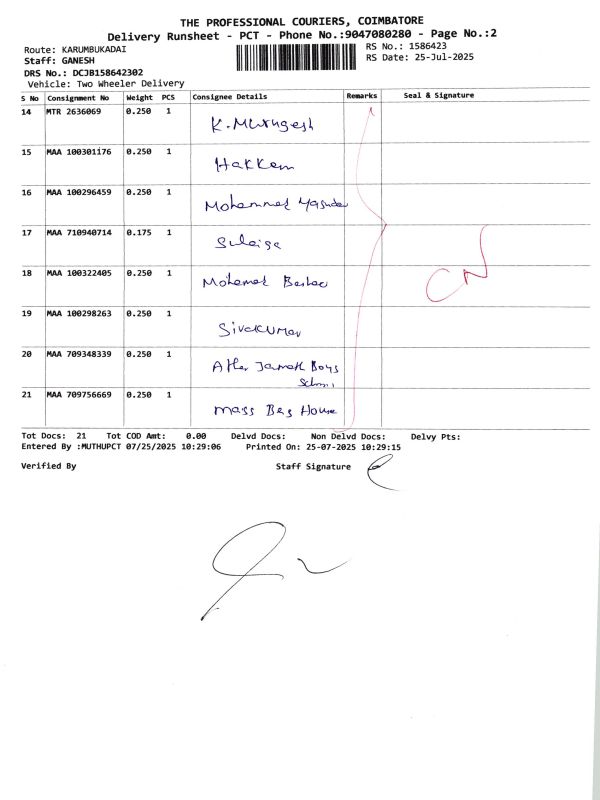 THE PROFESSIONAL COURIERS, COIMBATORE
Delivery Runsheet - PCT - Phone No.:9047080280 - Page No.:2
Route: KARUMBUKADAI RS No.: 1586423
Staff: GANESH RS Date: 25-Jul-2025
DRS No.: DCJB158642302
Vehicle: Two Wheeler Delivery
S No Consignment No Weight PCS Consignee Details Remarks Seal & Signature
14 MTR 2636069 0.250 1 K. Murugesh
15 MAA 100301176 0.250 1 Hakkem
16 MAA 100296459 0.250 1 Mohammed
17 MAA 710940714 0.175 1 Sulaiga
18 MAA 100322405 0.250 1 Mohamed
CN
19 MAA 100298263 0.250 1 Sivakumar
20 MAA 709348339 0.250 1 Boys
21 MAA 709756669 0.250 1 Mass Bag House
Tot Docs: 21 Tot COD Amt: 0.00 Delvd Docs: Non Delvd Docs: Delvy Pts:
Entered By :MUTHUPCT 07/25/2025 10:29:06 Printed On: 25-07-2025 10:29:15
Verified By Staff Signature